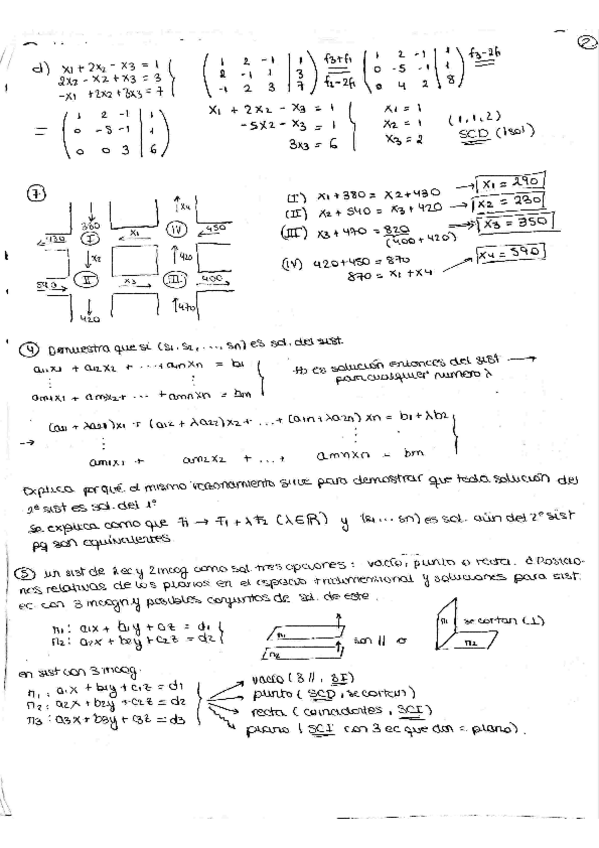 2
d) x1 + 2x2 - x3 = 1
2x2 - x2 + x3 = 3
-x1 + 2x2 + 3x3 = 7
( 1 2 -1 | 1
2 -1 1 | 3
-1 2 3 | 7 )
f3+f1
f2-2f1
( 1 2 -1 | 1
0 -5 -1 | 1
0 4 2 | 8 )
f3-2f1
= ( 1 2 -1 | 1
0 -5 -1 | 1
0 0 3 | 6 )
x1 + 2x2 - x3 = 1
-5x2 - x3 = 1
3x3 = 6
x1 = 1
x2 = 1
x3 = 2
(1,1,2)
SCD (1sol)
7
380 x1 x4 IV 450
430 I
x2 420
540 II x3 III 400
420 470
(I) x1 + 380 = x2 + 430 → x1 = 290
(II) x2 + 540 = x3 + 420 → x2 = 230
(III) x3 + 470 = 820 → x3 = 350
(400+420)
(IV) 420+450 = 870
870 = x1 + x4 → x4 = 590
4 Demuestra que si (s1, s2, ..., sn) es sol. del sist.
a11x1 + a12x2 + ... + a1nxn = b1
am1x1 + am2x2 + ... + amnxn = bm
es solución entonces del sist →
para cualquier numero λ
→ (a11 + λa21)x1 + (a12 + λa22)x2 + ... + (a1n + λa2n)xn = b1 + λb2
am1x1 + am2x2 + ... + amnxn = bm
Explica por qué el mismo razonamiento sirve para demostrar que toda solución del
2º sist es sol. del 1º
Se explica como que F1 → F1 + λF2 (λ∈R) y (s1 ... sn) es sol. aún del 2º sist
pq son equivalentes
5 un sist de 2 ec y 2 incog como sol. tres opciones: vacío, punto o recta. ¿Posicio-
nes relativas de los planos en el espacio tridimensional y soluciones para sist.
ec con 3 incogn y posibles conjuntos de sol. de este.
π1: a1x + b1y + c1z = d1
π2: a2x + b2y + c2z = d2
π1
π2
son // o
π1
π2
se cortan (⊥)
en sist con 3 incog.
π1: a1x + b1y + c1z = d1
π2: a2x + b2y + c2z = d2
π3: a3x + b3y + c3z = d3
vacío (3 //, SI)
punto (SCD, se cortan)
recta (coincidentes, SCI)
plano (SCI con 3 ec que dan = plano).